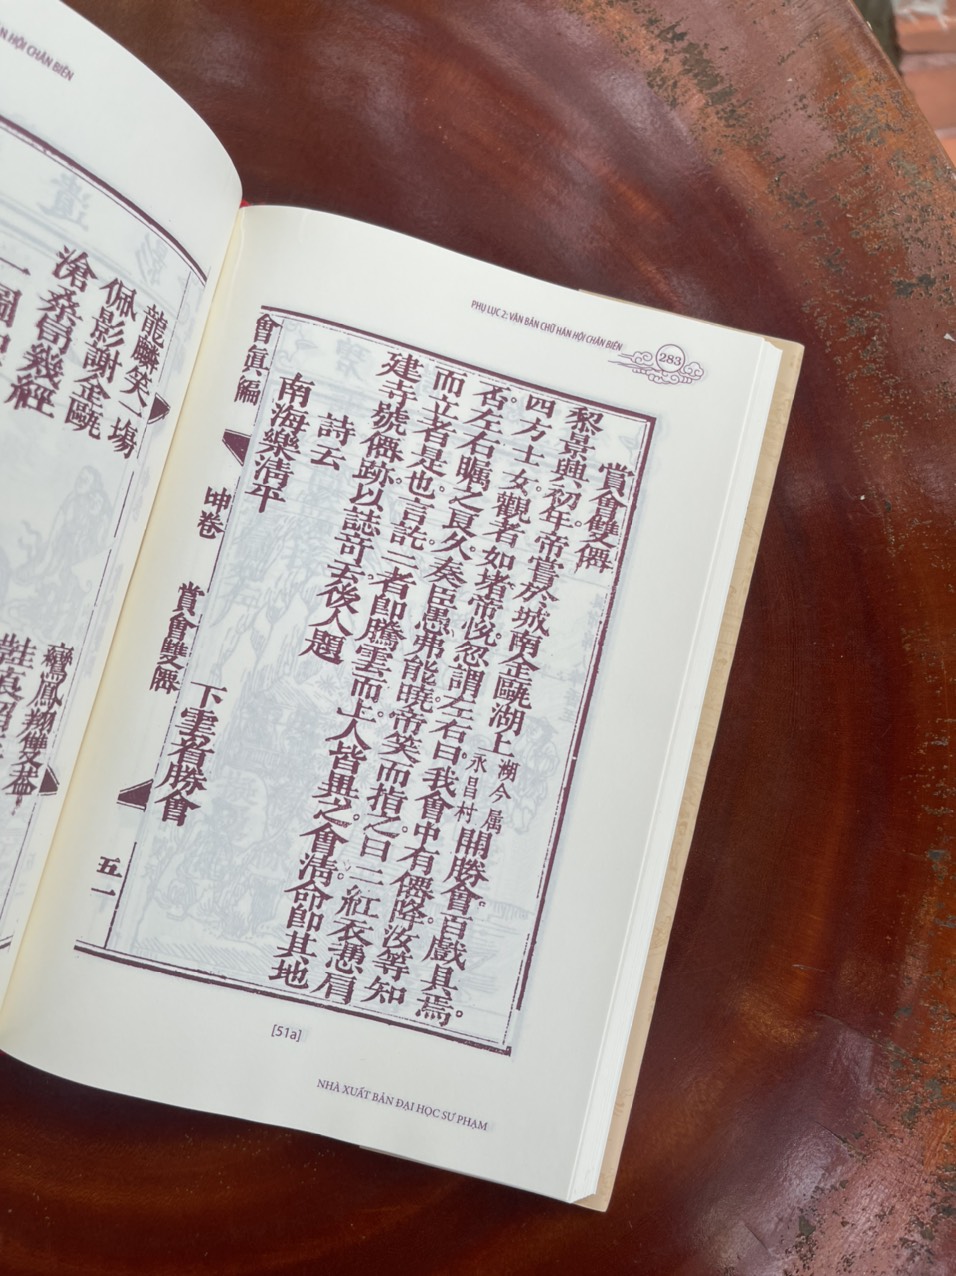 HỘI CHÂN BIÊN
龍麟笑一塲
佩影謝金甌
滄桑曾幾經
一圖
鸞鳳翔雙蓋
PHỤ LỤC 2: VĂN BẢN CHỮ HÁN HỘI CHÂN BIÊN
283
賞會雙僊
黎景興初年帝賞於城南金甌湖上湖今属永昌村開勝會百戲具焉。
四方士女觀者如堵帝悅忽謂左右曰我會中有僊降汝等知
否左右矚之良久奏臣愚弗能曉帝笑而指之曰二紅衣憑肩
而立者是也言訖二者即騰雲而上人皆異之會淸命即其地
建寺號僊跡以誌竒云後人題
詩云
南海樂淸平 下雲看勝會
會眞編 坤卷 賞會雙僊 五一
[51a]
NHÀ XUẤT BẢN ĐẠI HỌC SƯ PHẠM